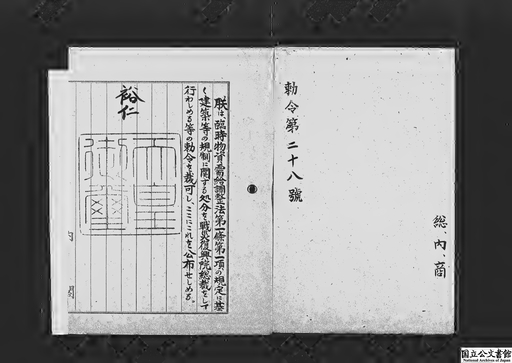 総、内、商
勅令第二十八號
朕は、臨時物資需給調整法第一條第一項の規定に基
く建築等の規制に関する処分を戦災復興院総裁をして
行わしめる等の勅令を裁可し、ここにこれを公布せしめる。
裕仁
天皇
御璽
内閣
国立公文書館
National Archives of Japan